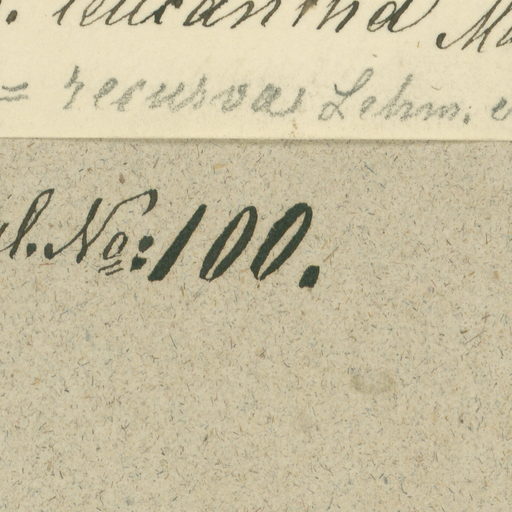 leucantha
= recurva Lehm.
l. No: 100.